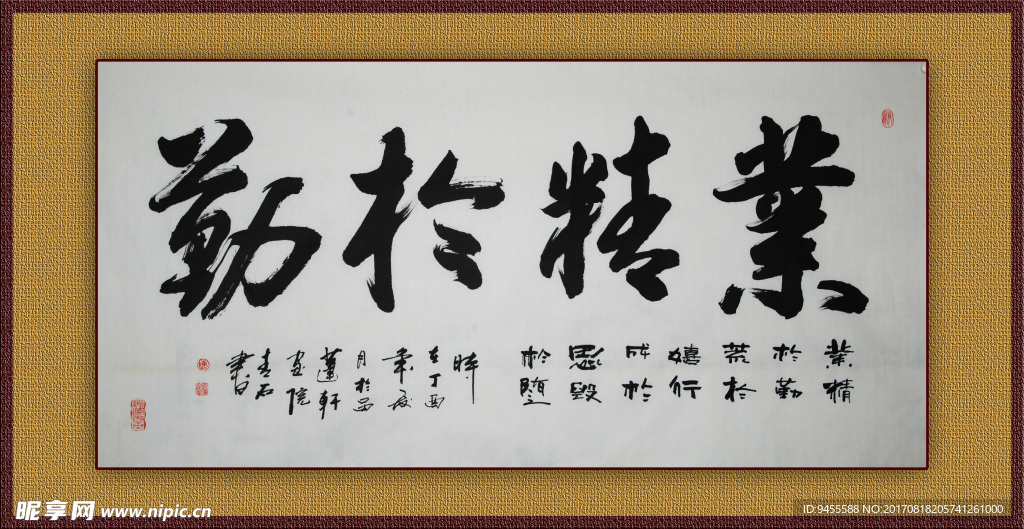 業精於勤
業精
於勤
荒於
嬉行
成於
思毀
於隨
時
在丁酉
月於
蓮軒
畫院
青石
書
昵享网 www.nipic.cn
ID:9455588 NO:20170818205741261000